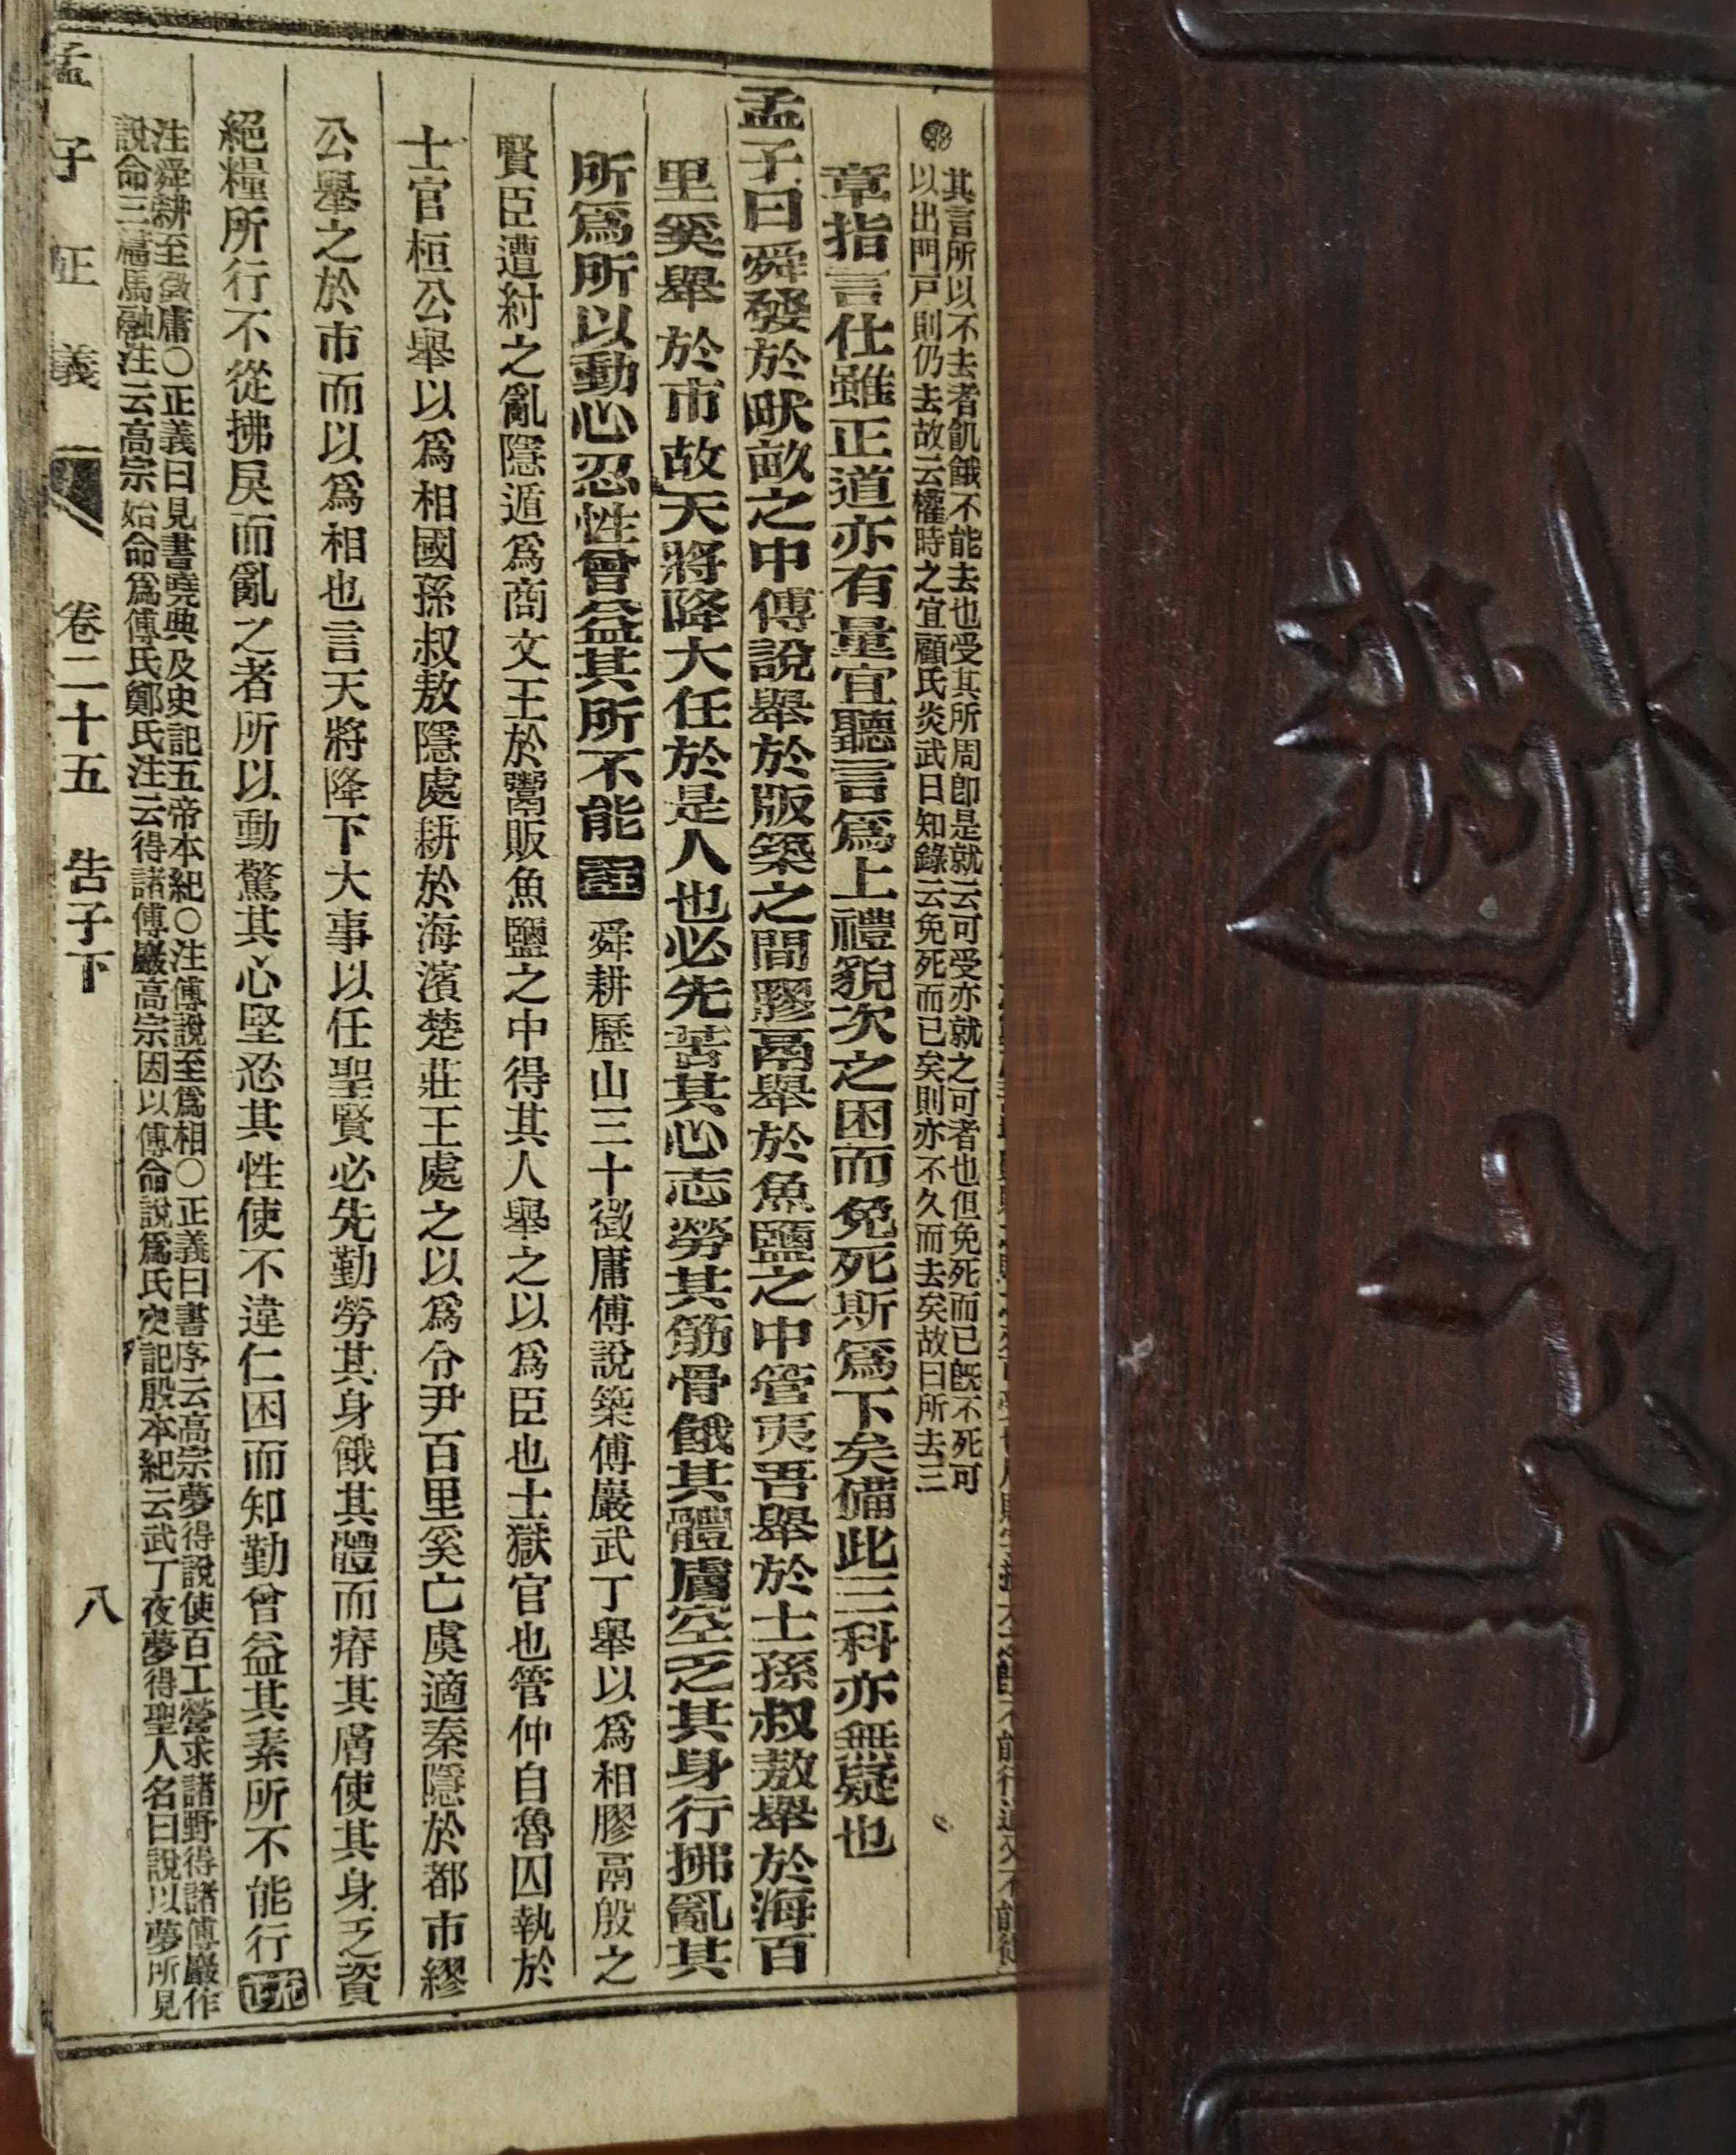 其言所以不去者飢餓不能去也受其所周卽是就云可受亦就之可者也但免死而已旣不死可
以出門戸則仍去故云權時之宜顧氏炎武日知錄云免死而已矣則亦不久而去矣故曰所去三
章指言仕雖正道亦有量宜聽言爲上禮貌次之困而免死斯爲下矣備此三科亦無疑也
孟子曰舜發於畎畝之中傅說舉於版築之間膠鬲舉於魚鹽之中管夷吾舉於士孫叔敖舉於海百
里奚舉於市故天將降大任於是人也必先苦其心志勞其筋骨餓其體膚空乏其身行拂亂其
所爲所以動心忍性曾益其所不能 註 舜耕歷山三十徵庸傅說築傅巖武丁舉以爲相膠鬲殷之
賢臣遭紂之亂隱遁爲商文王於鬻販魚鹽之中得其人舉之以爲臣也士獄官也管仲自魯囚執於
士官桓公舉以爲相國孫叔敖隱處耕於海濱楚莊王處之以爲令尹百里奚亡虞適秦隱於都市繆
公舉之於市而以爲相也言天將降下大事以任聖賢必先勤勞其身餓其體而瘠其膚使其身乏資
絕糧所行不從拂戾而亂之者所以動驚其心堅忍其性使不違仁困而知勤曾益其素所不能行
注舜耕至徵庸○正義曰見書堯典及史記五帝本紀○注傅說至爲相○正義曰書序云高宗夢得說使百工營求諸野得諸傅巖作
說命三篇馬融注云高宗始命爲傅氏鄭氏注云得諸傅巖高宗因以傅命說爲氏史記殷本紀云武丁夜夢得聖人名曰說以夢所見
孟子正義 卷二十五 告子下 八